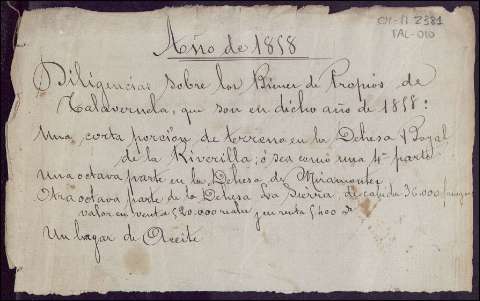 CH-II 2381
TAL-010
Año de 1858
Diligencias sobre los Bienes de Propios de
Talaveruela, que son en dicho año de 1858:
Una corta porción de terreno en la Dehesa
de la Riverilla; ó sea como una 4ª parte
Una octava parte en la Dehesa de Miramontes
Otra octava parte de la Dehesa La Sierra, de cabida 36.000
valor en venta 520.000 reales y en renta 5400
Un lagar de Aceite